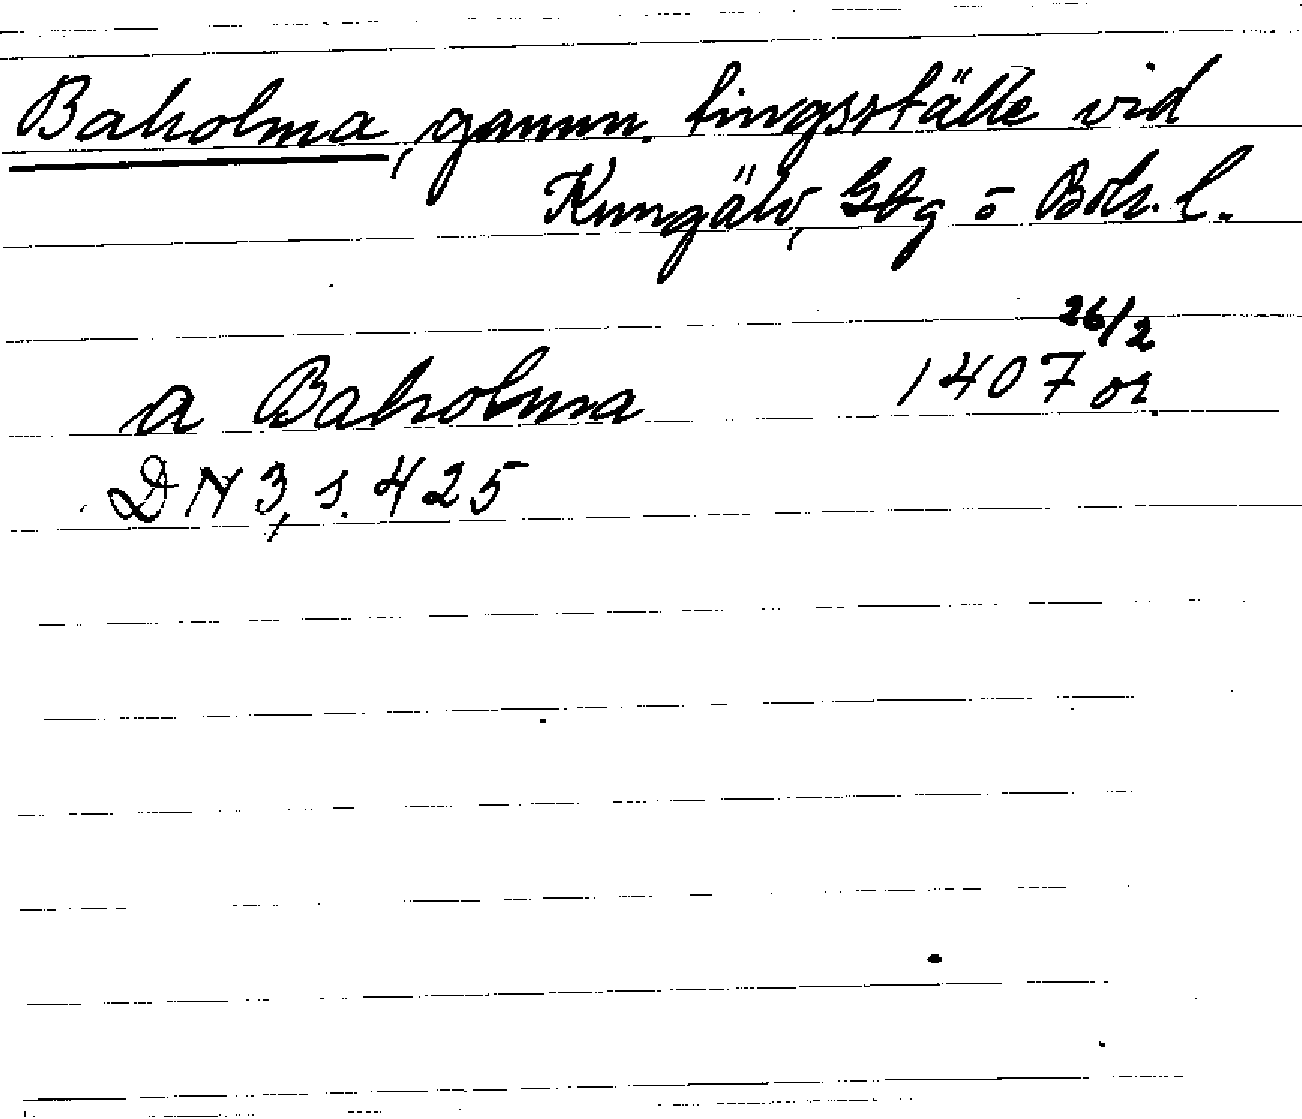 Baholma, gamm. tingsställe vid
Kungälv, Gbg o Boh. l.
a Baholma 1407 26/2 or.
DN 3, s. 425